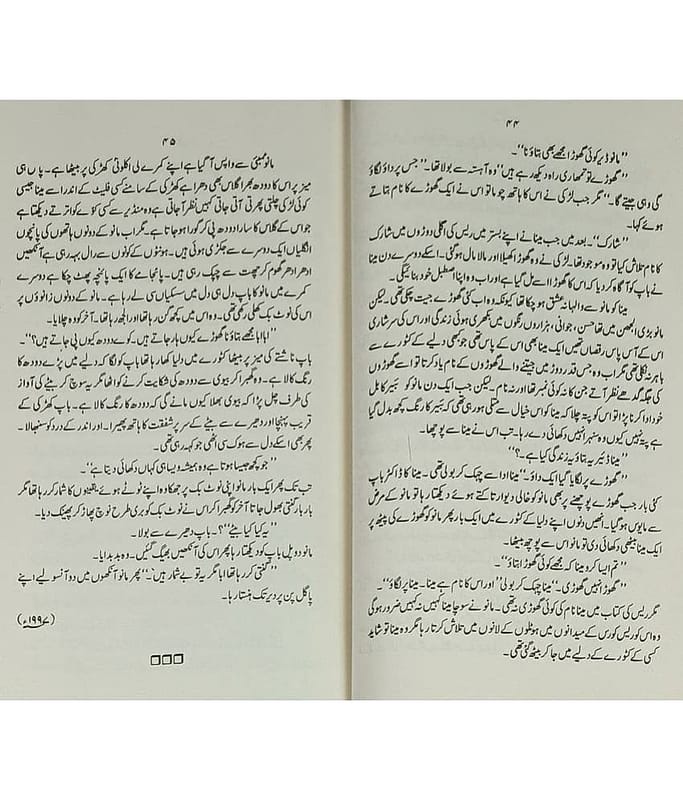 ۴۴
”مانو ڈیر کوئی گھوڑا مجھے بھی بتاؤ نا“۔
”گھوڑے تو تمھاری راہ دیکھ رہے ہیں“ وہ آہستہ سے بولا تھا۔ ”جس پر داؤ لگاؤ
گی وہی جیتے گا“۔ مگر جب لڑکی نے اس کا ہاتھ چوما تو اس نے ایک گھوڑے کا نام بتاتے
ہوئے کہا۔
”شارک“۔ بعد میں جب مینا نے اپنے بستر میں ریس کی اگلی دوڑوں میں شارک
کا نام تلاش کیا تو وہ موجود تھا۔ لڑکی نے وہ گھوڑا کھیلا اور مالا مال ہو گئی۔ اسکے دوسرے دن مینا
نے باپ کو آگاہ کر دیا کہ اس کا گھوڑا اسے مل گیا ہے اور اب وہ اپنا اصطبل خود بنائیگی۔
مینا کو مانو سے والہانہ عشق ہو چکا تھا کیونکہ وہ اب کئی گھوڑے جیت چکی تھی۔ لیکن
مانو بڑی الجھن میں تھا حسن، جوانی، ہزاروں رنگوں میں بکھری ہوئی زندگی اور اس کی سرشاری
اس کے آس پاس رقصاں تھیں ایک مینا بھی اس کے پاس تھی جو بھی دلیے کے کٹورے سے
باہر نہ نکلی تھی مگر اب وہ جس قدر روز میں جیتنے والے گھوڑوں کے نام یاد کرتا تو اسے گھوڑوں
کی جگہ گدھے نظر آتے جن کا نہ کوئی نمبر تھا اور نہ نام۔ لیکن جب ایک دن مانو کو بیئر کا بل
خود ادا کرنا پڑا تو اس کو پتہ چلا کہ مینا کو اس خیال سے متلی ہو رہی تھی کہ بیئر کا رنگ کچھ بدل گیا
ہے پتہ نہیں کیوں وہ سنہرا نہیں دکھائی دے رہا۔ تب اس نے مینا سے پوچھا۔
”مینا ڈئیر یہ بتاؤ یہ زندگی کیا ہے۔؟“
”گھوڑے پر لگایا گیا ایک داؤ۔“ مینا ادا سے چہک کر بولی تھی۔ مینا کا ڈاکٹر باپ
کئی بار جب گھوڑے پوچھنے پر بھی مانو کو خالی دیوار تاکتے ہوئے دیکھتا رہا تو مانو کے مرض
سے مایوس ہو گیا۔ انھیں دنوں اپنے دلیا کے کٹورے میں ایک بار پھر مانو کو گھوڑے کی پیٹھ پر
ایک مینا بیٹھی دکھائی دی تو مانو اس سے پوچھ بیٹھا۔
”تم ایسا کرو مینا کہ مجھے کوئی گھوڑا بتاؤ“۔
”گھوڑا نہیں گھوڑی۔“ مینا چہک کر بولی ”اور اس کا نام ہے مینا۔ مینا پر لگاؤ“۔
مگر ریس کی کتاب میں مینا نام کی کوئی گھوڑی نہ تھی۔ مانو نے سوچا مینا کہیں نہ کہیں ضرور ہوگی
وہ اس کو ریس کورس کے میدانوں میں ہوٹلوں کے لانوں میں تلاش کرتا رہا مگر وہ مینا تو شاید
کسی کے کٹورے کے دلیے میں جا کر بیٹھ گئی تھی۔
۴۵
مانو ممبئی سے واپس آ گیا ہے اپنے کمرے کی اکلوتی کھڑکی پر بیٹھا ہے۔ پاس ہی
میز پر اس کا دودھ بھرا گلاس بھی دھرا ہے کھڑکی کے سامنے کسی فلیٹ کے اندر اسے مینا جیسی
کوئی لڑکی چلتی پھرتی آتی جاتی کہیں نظر آ جاتی ہے وہ منڈیر سے کسی کوّے کو اترتے دیکھتا ہے
جو اس کے گلاس کا سارا دودھ پی کر گورا ہو جاتا ہے۔ مگر اب مانو کے دونوں ہاتھوں کی پانچوں
انگلیاں ایک دوسرے سے جکڑی ہوئی ہیں۔ ہونٹوں سے رال بہہ رہی ہے آنکھیں
ادھر ادھر گھوم کر چھت سے چپک رہی ہیں۔ پانجامے کا ایک پائنچہ پھٹ چکا ہے دوسرے
کمرے میں مانو کا باپ دل ہی دل میں سسکیاں سی لے رہا ہے۔ مانو کے دونوں زانوؤں پر
اس کی نوٹ بک کھلی رکھی تھی۔ وہ اس میں کچھ گن رہا تھا اور الجھ رہا تھا۔ آخر کو وہ چلایا۔
”ابا ابا مجھے بتاؤ نا گھوڑے کیوں ہار جاتے ہیں۔ کوے دودھ کیوں پی جاتے ہیں؟“۔
باپ ناشتے کی میز پر بیٹھا کٹورے میں دلیا کھا رہا تھا باپ کو لگا کہ دلیے میں پڑے دودھ کا
رنگ کالا ہے۔ وہ گھبرا کر بیوی سے دودھ کی شکایت کرنے کو اٹھا مگر یہ سوچ کر بیٹے کی آواز
کی طرف چل پڑا کہ بیوی بھلا کیوں مانے گی کہ دودھ کا رنگ کالا ہے۔ باپ کھڑکی کے
قریب پہنچا اور دھیرے سے بیٹے کے سر پر شفقت کا ہاتھ پھیرا۔ اور اندر کے درد کو سنبھالا۔
پھر بھی اسکے دل سے ہوک سی اٹھی جو کہہ رہی تھی۔
”جو کچھ جیسا ہوتا ہے وہ ہمیشہ ویسا ہی کہاں دکھائی دیتا ہے“۔
تب تک پھر ایک بار مانو اپنی نوٹ بک پر جھکا وہ اپنے ٹوٹے ہوئے یقینوں کا شمار کر رہا تھا مگر
بار بار گنتی بھول جاتا آخر کو گھبرا کر اس نے نوٹ بک کو بری طرح نوچ پھاڑ کر پھینک دیا۔
”یہ کیا کیا بیٹے“؟۔ باپ دھیرے سے بولا۔
مانو دو پل باپ کو دیکھتا رہا پھر اس کی آنکھیں بھیگ گئیں۔ وہ بدبدایا۔
”گنتی کر رہا تھا ابا مگر یہ تو بے شمار ہیں“۔ پھر مانو آنکھوں میں دو آنسو لیے اپنے
پاگل پن پر دیر تک ہنستا رہا۔
(۱۹۹۷ء)